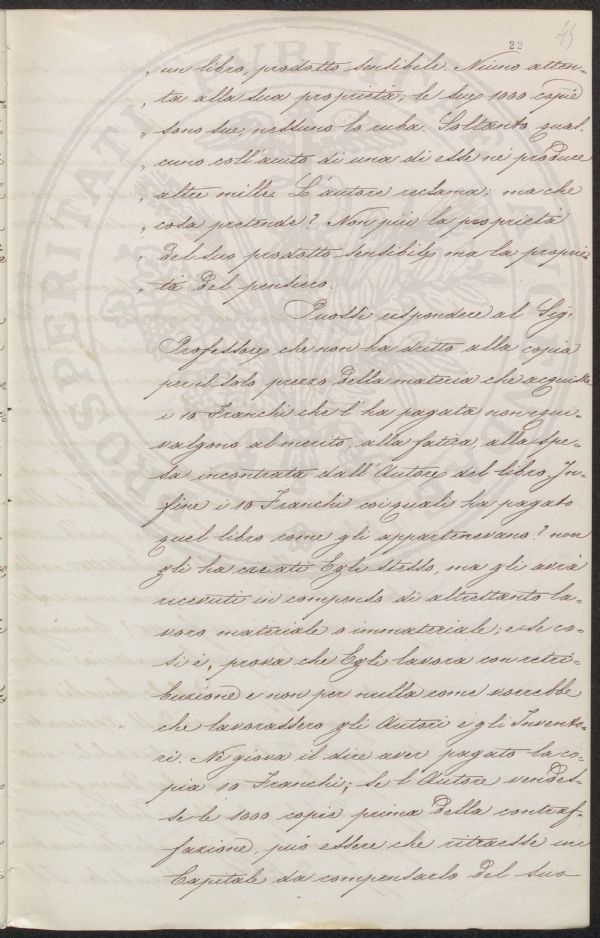 22
45
„ un libro, prodotto sensibile. Niuno atten-
„ ta alla sua proprietà, le sue 1000 copie
„ sono sue, nessuno lo ruba. Soltanto qual,
„ cuno coll'aiuto di una di esse ne produce
„ altre mille. L'autore reclama; ma che
„ cosa pretende? Non più la proprietà
„ del suo prodotto sensibile, ma la proprie-
„ tà del pensiero.
Puossi rispondere al Sig.
Professore, che non ha dritto alla copia
per il solo prezzo della materia che acquista
i 10 Franchi che l'ha pagata non equi-
valgono al merito, alla fatica, alla spe-
sa incontrata dall'Autore del libro. In-
fine i 10 Franchi coi quali ha pagato
quel libro come gli appartenevano? non
gli ha creati Egli stesso, ma gli avrà
ricevuti in compenso di altrettanto la-
voro materiale o immateriale; e se co-
sì è, prova che Egli lavora con retri-
buzione e non per nulla come vorrebbe
che lavorassero gli Autori e gli Invento-
ri. Nè giova il dire aver pagato la co-
pia 10 Franchi; se l'Autore vendes-
se le 1000 copie prima della contraf-
fazione, può essere che ritraesse un
Capitale da compensarlo del suo
PROSPERITATI PUBLICAE